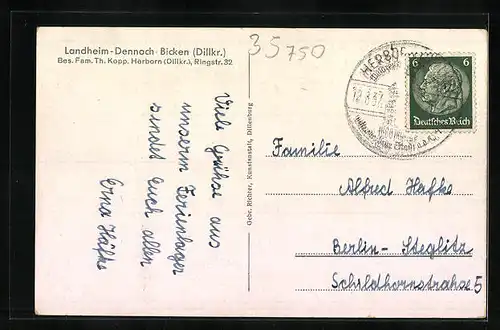 Landheim-Dennoch-Bicken (Dillkr.)
Bes. Fam. Th. Kopp, Herborn (Dillkr.), Ringstr. 32
35750
Viele Grüße aus
unserm Ferienlager
sendet euch allen
Erna Häfke
Gebr. Richter, Kunstanstalt, Dillenburg
HERBO
6 6
Deutsches Reich
Familie
Alfred Hafke
Berlin-Steglitz
Schildhornstrahse 5